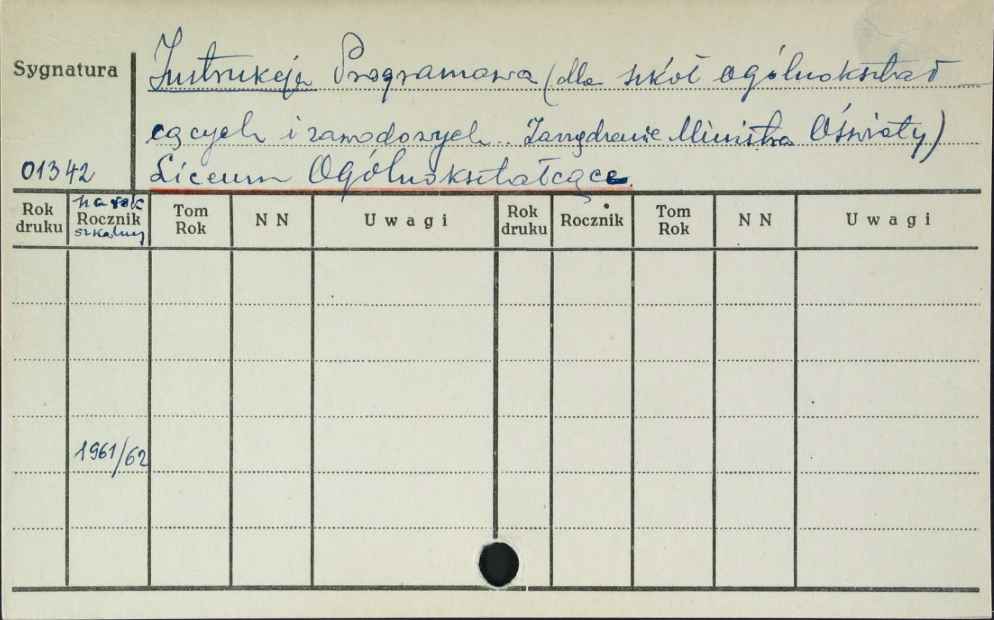 Sygnatura
Instrukcja Programowa (dla szkół ogólnokształ
cących i zawodowych.. Zarządzenie Ministra Oświaty)
01342
Liceum Ogólnokształcące.
Rok druku
na rok Rocznik szkolny
Tom Rok
NN
Uwagi
Rok druku
Rocznik
Tom Rok
NN
Uwagi
1961/62